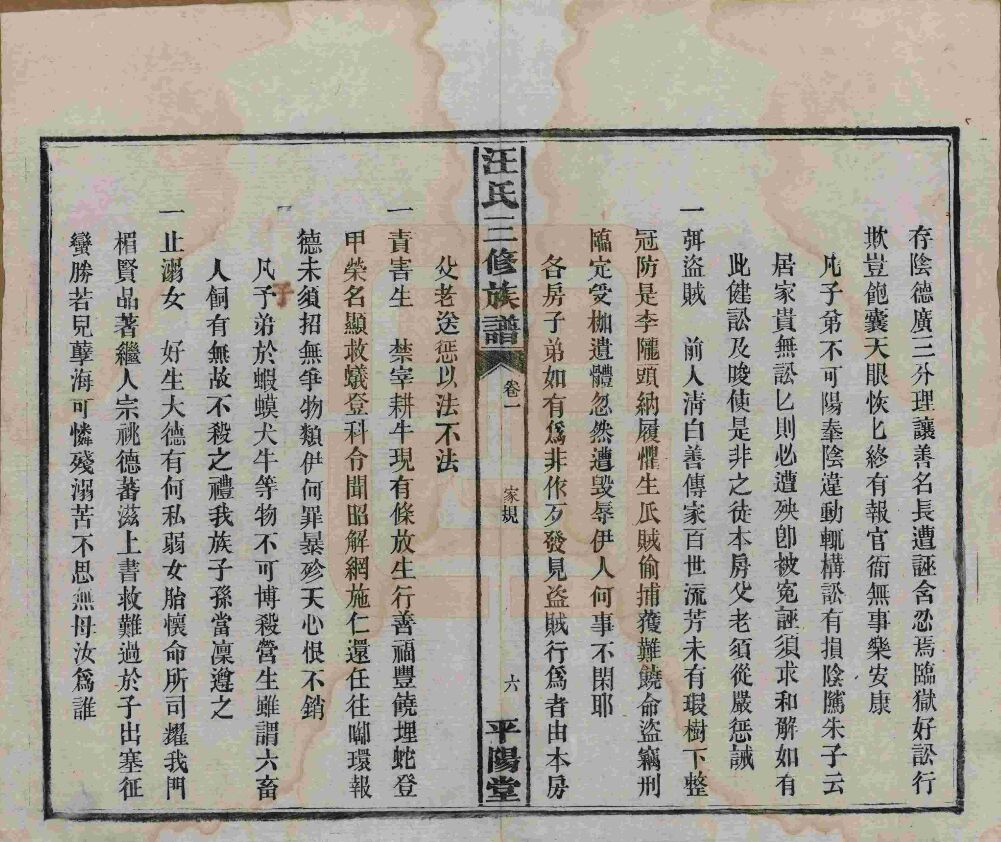 存陰德廣三分理讓善名長遭誣含忍焉臨獄好訟行
欺豈飽囊天眼恢匕終有報官衙無事樂安康
凡子弟不可陽奉陰違動輒構訟有損陰隲朱子云
居家貴無訟匕則必遭殃卽被冤誣須求和解如有
此健訟及唆使是非之徒本房父老須從嚴惩誡
一弭盜賊 前人清白善傳家百世流芳未有瑕樹下整
冠防是李隴頭納履懼生瓜賊偷捕獲難饒命盜竊刑
臨定受枷遺體忽然遭毀辱伊人何事不閑耶
各房子弟如有爲非作歹發見盜賊行爲者由本房
父老送惩以法不法
汪氏三修族譜
卷一
家規
六
平陽堂
一責害生 禁宰耕牛現有條放生行善福豐饒埋蛇登
甲榮名顯救蟻登科令聞昭解網施仁還在往啣環報
德未須招無爭物類伊何罪暴殄天心恨不銷
凡子弟於蝦蟆犬牛等物不可博殺營生雖謂六畜
人飼有無故不殺之禮我族子孫當凜遵之
子
一止溺女 好生大德有何私弱女胎懷命所司耀我門
楣賢品著繼人宗祧德蕃滋上書救難過於子出塞征
蠻勝若兒孽海可憐殘溺苦不思無母汝爲誰